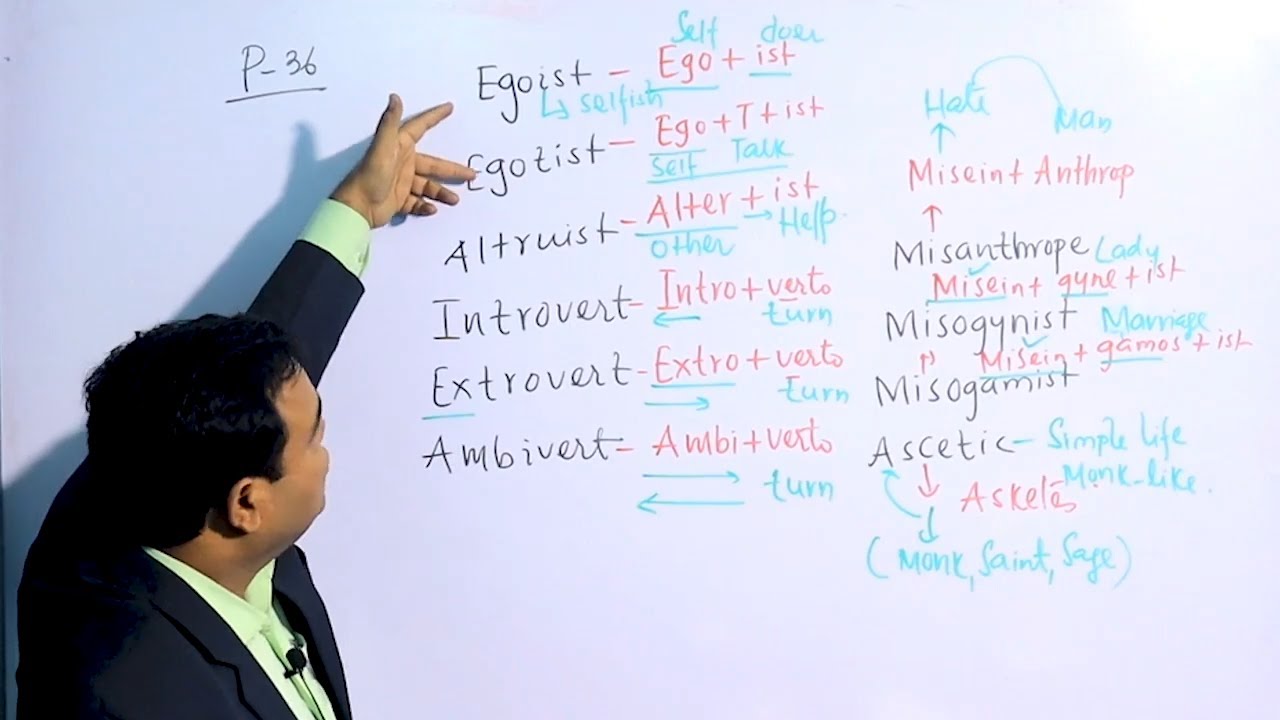 P-36
Self doer
Egoist - Ego + ist
↳ selfish
Egotist - Ego + T + ist
Self Talk
Altruist - Alter + ist → Help.
Other
Introvert - Intro + verto
← turn
Extrovert - Extro + verto
→ turn
Ambivert - Ambi + verto
→ ← turn
Hate Man
↑
Misein + Anthrop
↑
Misanthrope Lady
Misein + gyne + ist
Misogynist Marriage
Misein + gamos + ist
Misogamist
Ascetic - Simple life
Monk-like.
↓ Askelēs
↓
(Monk, Saint, Sage)